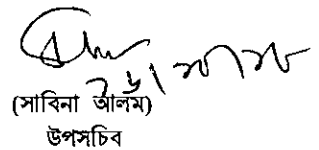 (সাবিনা আলম)
উপসচিব